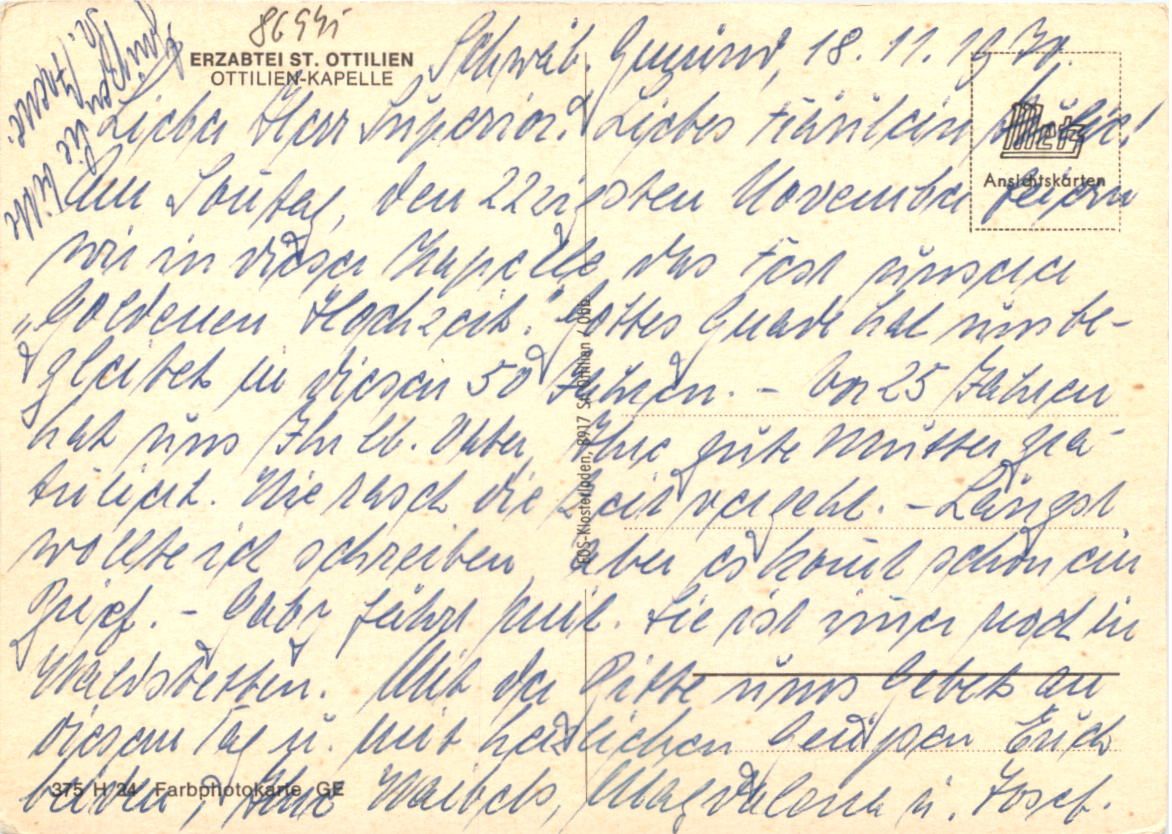 86941
ERZABTEI ST. OTTILIEN
OTTILIEN-KAPELLE
Schwäb. Gmünd, 18. 11. 1970.
Metz
Ansichtskarten
Lieber Herr Superior! Liebes Fräulein
Am Sontag, den 22zigsten November feiern
wir in dieser Kapelle das Fest unserer
„Goldenen Hochzeit." Gottes Gnade hat uns be-
gleitet in diesen 50 Jahren. – Vor 25 Jahren
hat uns Ihr lb. Vater, Ihre gute Mutter gra-
tuliert. Wie rasch die Zeit vergeht. – Längst
wollte ich schreiben, aber es komt schon ein
Brief. – Gaby fährt mit. Sie ist imer noch in
Waldstetten. Mit der Bitte ums Gebet an
diesem Tag u. mit herzlichen Grüßen Euch
beiden, Ihre Waibels, Magdalena u. Josef.
EOS-Klosterladen, 8917 St. Ottilien / Obb.
375 H 24 Farbphotokarte GE